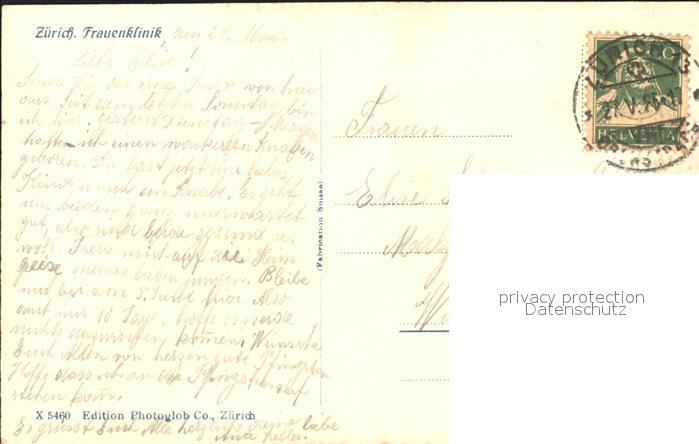 Zürich. Frauenklinik den 27. Mai.
Liebe Elise!
Sende Dir eine von hier
aus. Seit dem letzten Sonntag bin
ich hier. Gestern Dienstag-Morgen
ich einen wackeren Knaben
geboren. Du hast jetzt ein liebes
Kind u. ich ein Knabe. Es geht
uns beiden ganz unerwartet
gut, also sind beide gesund u.
wohl. Freue mich auf die Heim
reise meines lieben jungen. Bleibe
nur bis am 5. Juni hier. Also
nur 10 Tage, hoffe es werde
nichts dazwischen kommen. Wünsche
Euch Allen von herzen gute Pfingsten
Hoffe dass ich an der Pfingsten auf
stehen kann.
X 5460 Edition Photoglob Co., Zürich
Es grüsst Euch Alle herzlich Deine liebe
Anna Keller.
(Fabrication Suisse)
Frauen
Elise
ZÜRICH 13
27.V.25
HELVETIA
privacy protection
Datenschutz